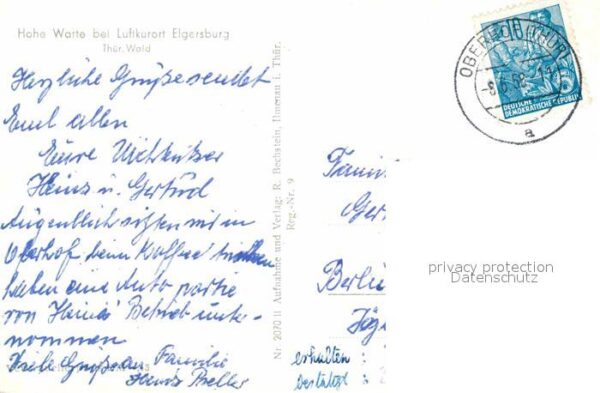 Hohe Warte bei Luftkurort Elgersburg
Thür. Wald
Herzliche Grüße sendet
Euch allen
Eure
Heinz u. Gertrud
Augenblich sitzen wir in
Oberhof beim Kaffee trinken
haben eine Auto partie
von Heinz Betrieb unter-
nommen
Viele Grüße an Familie
Nr. 2070 II Aufnahme und Verlag: R. Bechstein, Ilmenau i. Thür.
Reg.-Nr. 9
OBERHOF (THÜR)
a
DEUTSCHE
DEMOKRATISCHE REPUBLIK
Fami
Ger
Berli
Jäg
erhalten :
bestätigt :
privacy protection
Datenschutz